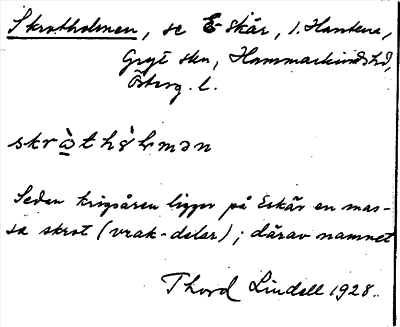 Skrotholmen, se E-skär, l. Hantera,
Gryt skn, Hammarkinds hd,
Österg. l.
skrɷ̀thɵ̀lmən
Sedan krigsåren ligger på Eskär en mas-
sa skrot (vrak-delar); därav namnet
Thord Lindell 1928.